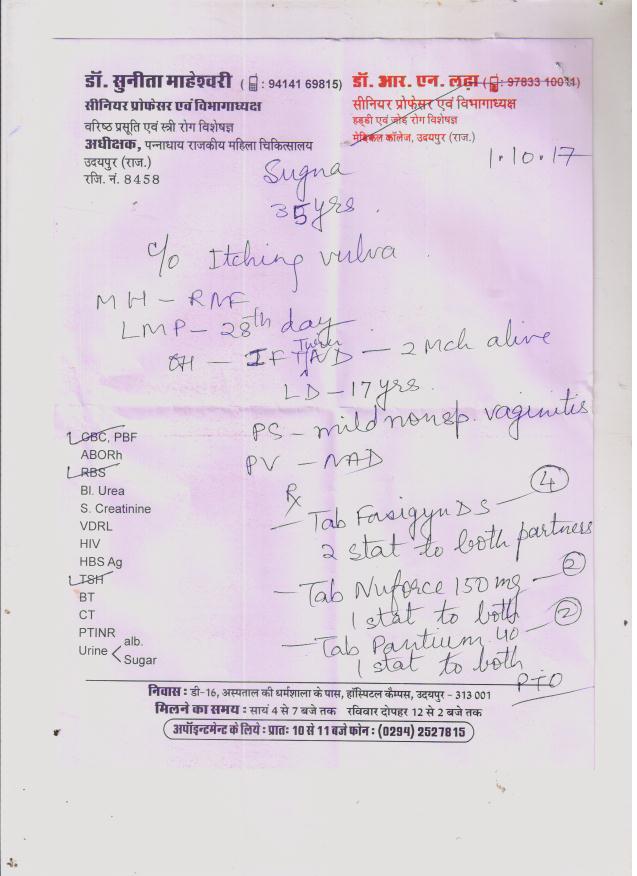 डॉ. सुनीता माहेश्वरी ( : 94141 69815)
सीनियर प्रोफेसर एवं विभागाध्यक्ष
वरिष्ठ प्रसूति एवं स्त्री रोग विशेषज्ञ
अधीक्षक, पन्नाधाय राजकीय महिला चिकित्सालय
उदयपुर (राज.)
रजि. नं. 8458
डॉ. आर. एन. लढ़ा ( : 97833 10011)
सीनियर प्रोफेसर एवं विभागाध्यक्ष
हड्डी एवं जोड़ रोग विशेषज्ञ
मेडिकल कॉलेज, उदयपुर (राज.)
1.10.17
Sugna
35 yrs.
c/o Itching vulva
MH - RMF
LMP - 28th day
OH - FTND - 2 Mch alive
LD - 17 yrs.
PS - mild nonsp. vaginitis
PV - NAD
CBC, PBF
ABORh
RBS
Bl. Urea
S. Creatinine
VDRL
HIV
HBS Ag
TSH
BT
CT
PTINR
Urine alb.
Sugar
Rx
- Tab Fasigyn DS - 4
2 stat to both partners
- Tab Nuforce 150 mg - 2
1 stat to both
- Tab Pantium 40 - 2
1 stat to both
PTO
निवास : डी-16, अस्पताल की धर्मशाला के पास, हॉस्पिटल कैम्पस, उदयपुर - 313 001
मिलने का समय : सायं 4 से 7 बजे तक रविवार दोपहर 12 से 2 बजे तक
अपॉइन्टमेन्ट के लिये : प्रातः 10 से 11 बजे फोन : (0294) 2527815